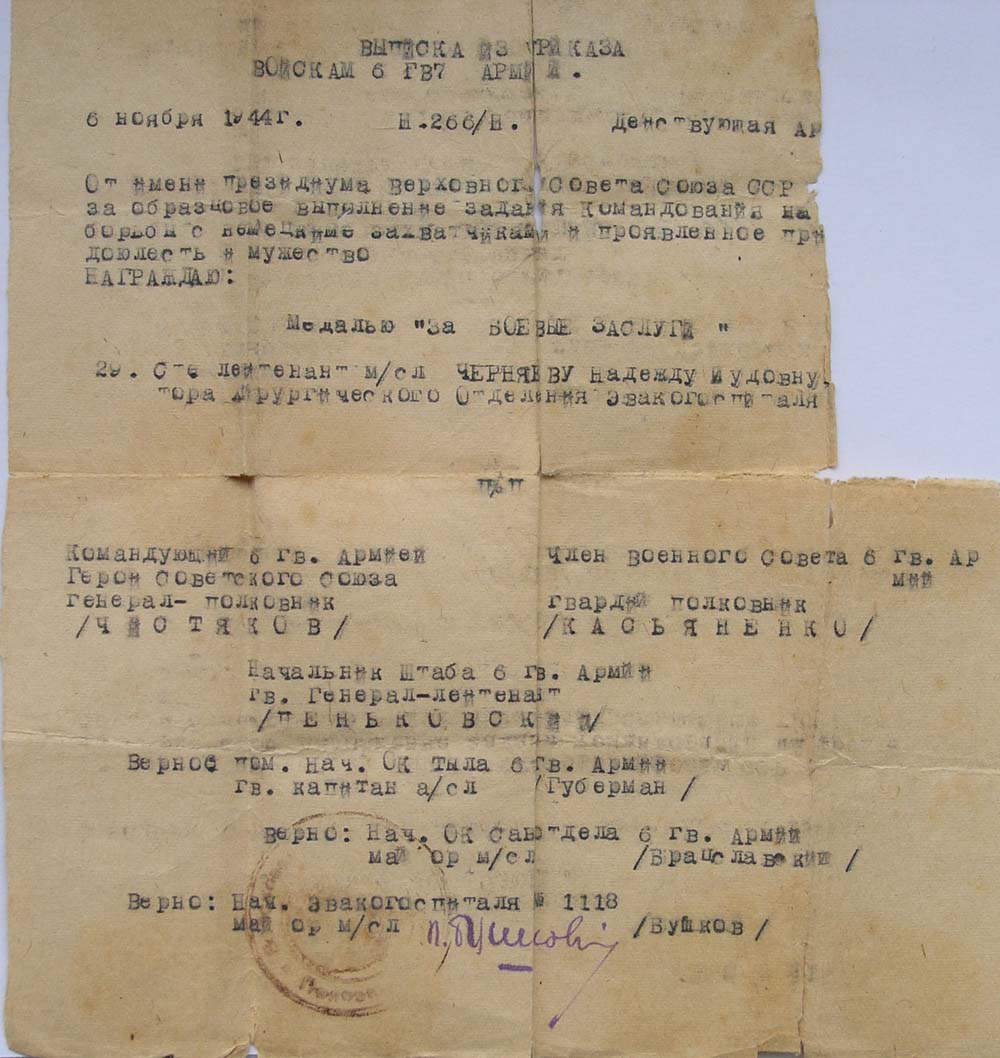 ВЫПИСКА ИЗ ПРИКАЗА
ВОЙСКАМ 6 ГВ7 АРМИИ.
6 ноября 1944г. Н.266/Н. Действующая Ар
От имени президиума Верховного Совета Союза ССР
за образцовое выполнение задания Командования на
борьбы с немецкиме захватчиками и проявленное при
доюлесть и мужество
НАГРАЖДАЮ:
Медалью "За БОЕВЫЕ ЗАСЛУГИ "
29. Сте лейтенант м/сл ЧЕРНЯЕВУ Надежду Иудовну
тора Хирургического Отделения Эвакогоспиталя
П/П
Командующий 6 гв. Армией
Герой Советского Союза
генерал- полковник
/ЧИСТЯКОВ/
Член Военного Совета 6 гв. Ар
мий
гвардий полковник
/КАСЬЯНЕНКО/
Начальник Штаба 6 гв. Армии
гв. Генерал-лейтенант
/ПЕНЬКОВСКИЙ/
Верное пом. Нач. ОК тыла 6 гв. Армии
гв. капитан а/сл /Губерман /
Верно: Нач. ОК Санотдела 6 гв. Армии
майор м/сл /Брацславский /
Верно: Нач. Эвакогоспиталя № 1118
майор м/сл п. Бушков /Бушков /